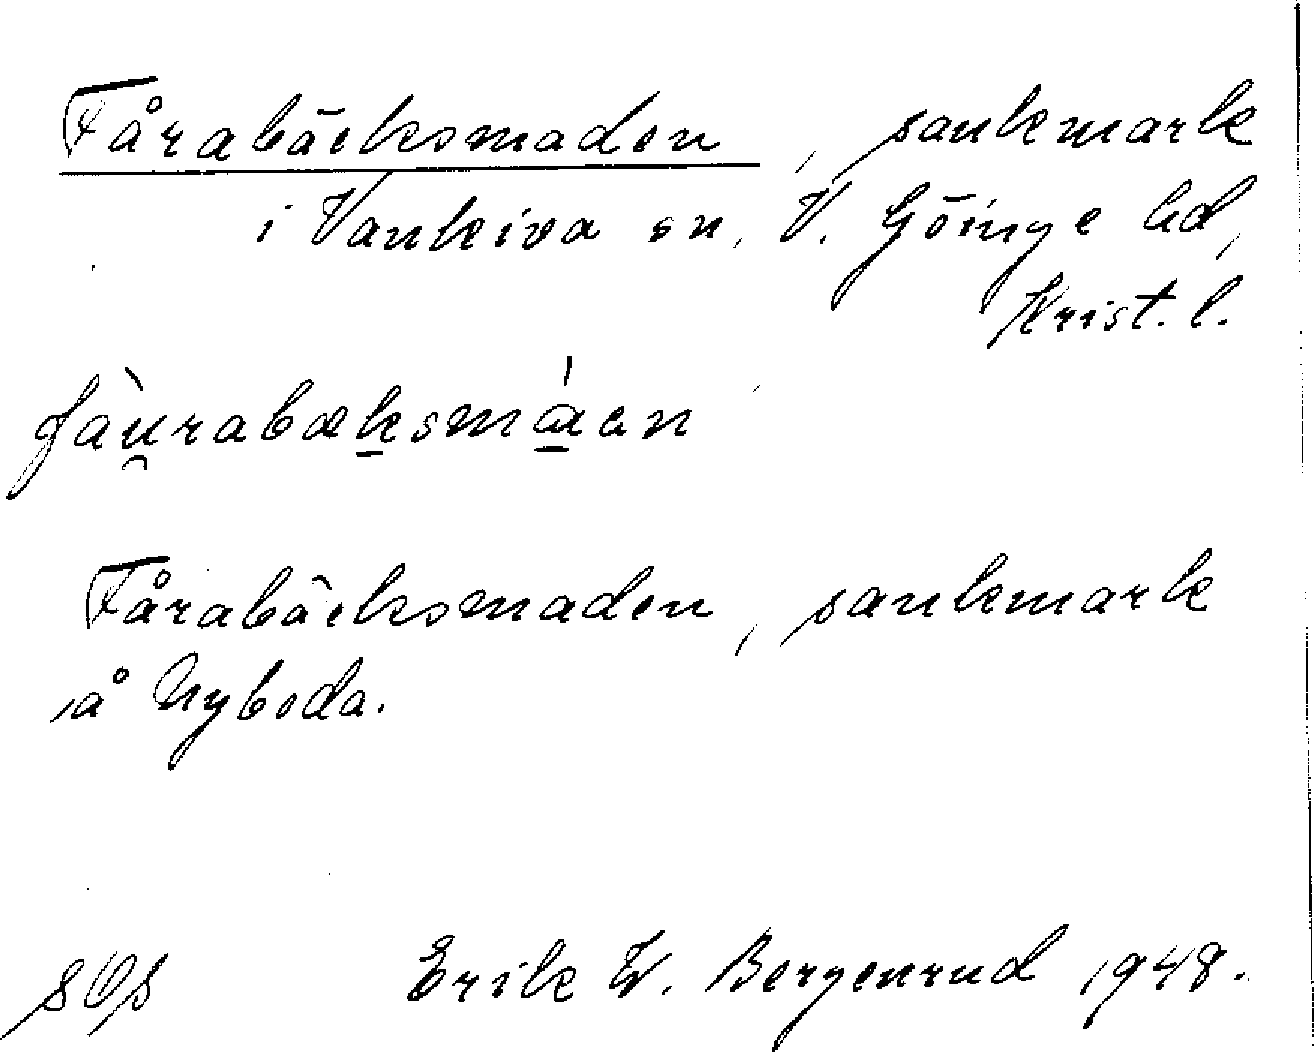 Fårabäcksmaden, sankmark
i Vankiva sn, V. Göinge hd,
Krist. l.
fàu̯rabæksmáen
Fårabäcksmaden, sankmark
å Nyboda.
SOS Erik W. Bergenrud 1948.